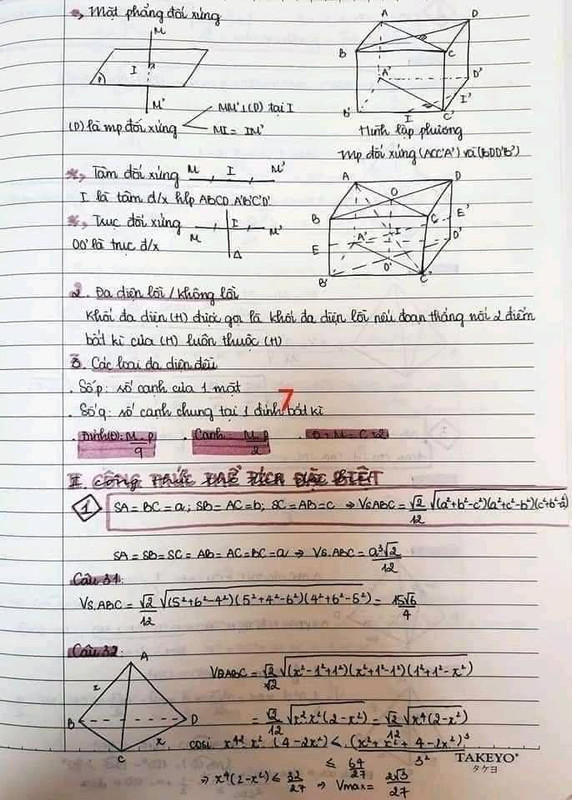 *, Mặt phẳng đối xứng
M
I
P
M'
MM' ⊥ (P) tại I
(P) là mp đối xứng
MI = IM'
A D
B C
A' D'
I'
B' I C'
Hình lập phương
mp đối xứng (ACC'A') và (BDD'B')
*, Tâm đối xứng M I M'
I là tâm đ/x hlp ABCD.A'B'C'D'
*, Trục đối xứng M I M'
Δ
OO' là trục đ/x
A D
O
B C
E'
E A' I D'
O'
B' C'
2. Đa diện lồi / không lồi
Khối đa diện (H) được gọi là khối đa diện lồi nếu đoạn thẳng nối 2 điểm
bất kì của (H) luôn thuộc (H)
3. Các loại đa diện đều
. Số p: số cạnh của 1 mặt
7
. Số q: số cạnh chung tại 1 đỉnh bất kì
. Đỉnh(Đ): M.P/q . Cạnh: M.P/2 . Đ + M - C = 2
II. CÔNG THỨC THỂ TÍCH ĐẶC BIỆT
1 SA = BC = a; SB = AC = b; SC = AB = c ⇒ VS.ABC = √2/12 √(a²+b²-c²)(a²+c²-b²)(c²+b²-a²)
SA = SB = SC = AB = AC = BC = a ⇒ VS.ABC = a³√2/12
Câu 31:
VS.ABC = √2/12 √(5²+6²-4²)(5²+4²-6²)(4²+6²-5²) = 15√6/4
Câu 32
A
x
B D
x
C
VDABC = √2/√2 √(x²-1²+1²)(x²+1²-1²)(1²+1²-x²)
= √2/12 √x²x²(2-x²) = √2/12 √x⁴(2-x²)
cosi x² x² (4-2x²) ≤ (x²+x²+4-2x²)³/3³
≤ 64/27
⇒ x⁴(2-x²) ≤ 32/27 ⇒ Vmax = 2√3/27
TAKEYO®
タケヨ